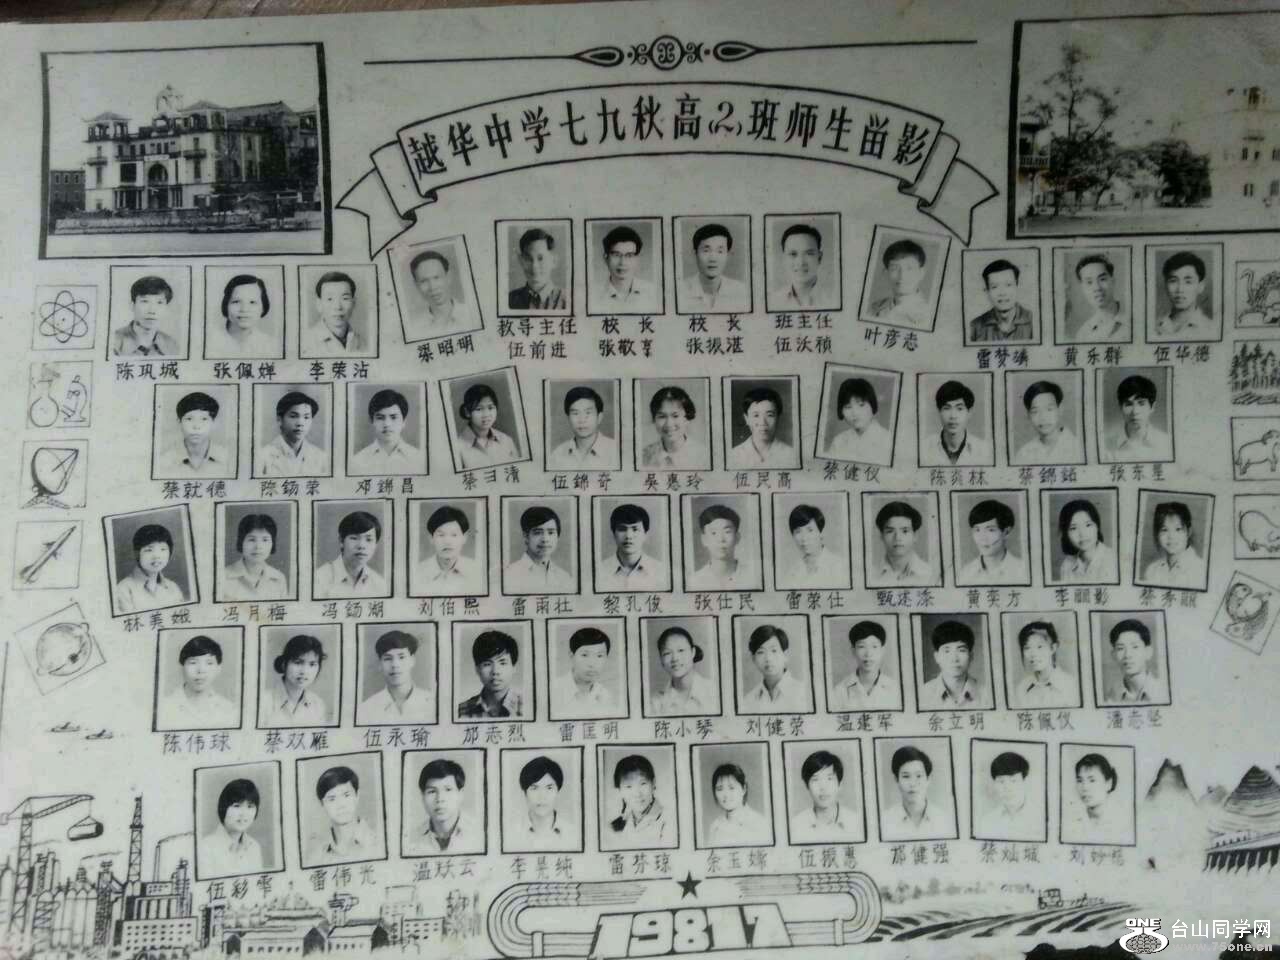 越华中学七九秋高(2)班师生畄影
教导主任 校长 校长 班主任
梁昭明 伍前进 张敬享 张振湛 伍沃祯 叶彦志
陈巩城 张佩婵 李荣沾 雷梦 黄乐群 伍华德
蔡就德 陈钖荣 邓錦昌 蔡彐清 伍錦奇 吴惠玲 伍民高 蔡健仪 陈炎林 蔡錦 张东星
林美娥 冯月梅 冯钖湖 刘伯熙 雷雨壮 黎孔俊 张仕民 雷荣仕 甄述添 黄奕方 李丽影 蔡秀丽
陈伟球 蔡双雁 伍永瑜 邝志烈 雷匡明 陈小琴 刘健荣 温建军 余立明 陈佩仪 潘志坚
伍彩雫 雷伟光 温跃云 李景纯 雷芬琼 余玉嫦 伍振惠 邝健强 蔡灿城 刘妙
1981.7
ONE
台山同学网
www.75one.cn